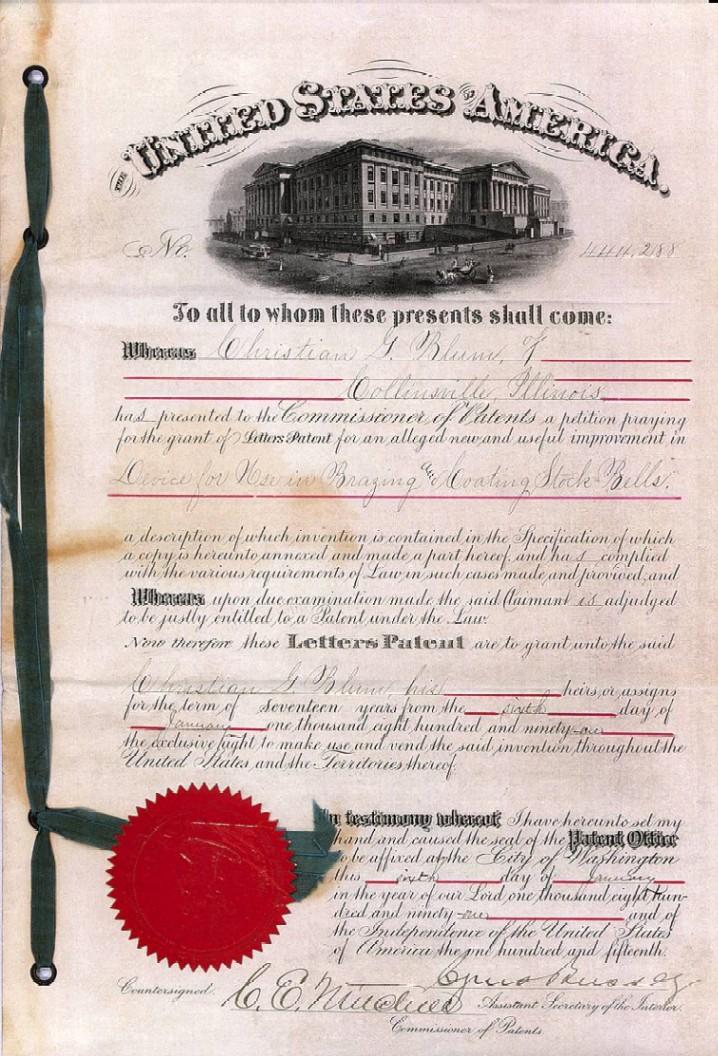 THE UNITED STATES OF AMERICA.
No. 444,288
To all to whom these presents shall come:
Whereas Christian G. Blum, of
Collinsville, Illinois,
has presented to the Commissioner of Patents a petition praying
for the grant of Letters Patent for an alleged new and useful improvement in
Device for Use in Brazing or Coating Stock-Bells.
a description of which invention is contained in the Specification of which
a copy is hereunto annexed and made a part hereof, and has complied
with the various requirements of Law in such cases made and provided, and
Whereas upon due examination made the said Claimant is adjudged
to be justly entitled to a Patent under the Law.
Now therefore these Letters Patent are to grant unto the said
Christian G. Blum, his heirs or assigns
for the term of seventeen years from the sixth day of
January one thousand eight hundred and ninety-one
the exclusive right to make use and vend the said invention throughout the
United States and the Territories thereof.
In testimony whereof I have hereunto set my
hand and caused the seal of the Patent Office
to be affixed at the City of Washington
this sixth day of January
in the year of our Lord one thousand eight hun-
dred and ninety-one and of
the Independence of the United States
of America the one hundred and fifteenth.
Countersigned. C. E. Mitchell Assistant Secretary of the Interior.
Commissioner of Patents